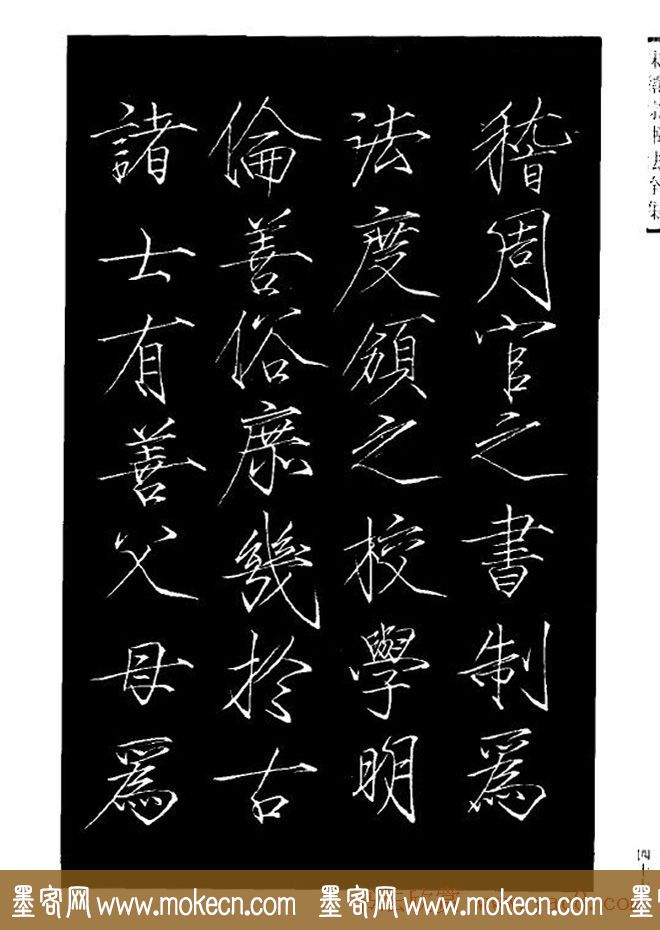 稽周官之書制爲
法度頒之校學明
倫善俗庶幾於古
諸士有善父母爲
墨客网 www.mokecn.com 墨客网 www.mokecn.com